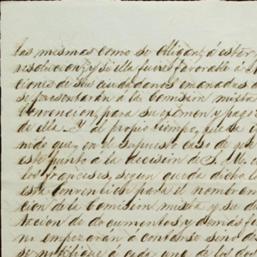 las mismas como se obligan, á estar
resolucion, y si ella fuere favorable á
ciones de sus ciudadanos emanadas de
se presentarán á la Comision mixta
Convencion, para su exámen y pago
de ella. Y al propio tiempo,
mido que, en el supuesto caso de que
este punto á la decision de S. M.
los franceses, segun queda dicho
esta convencion para el nombram
cion de la Comision mixta y su de
tacion de documentos y demás
no empezarán á contarse sino des
se notifique á cada uno de los dos